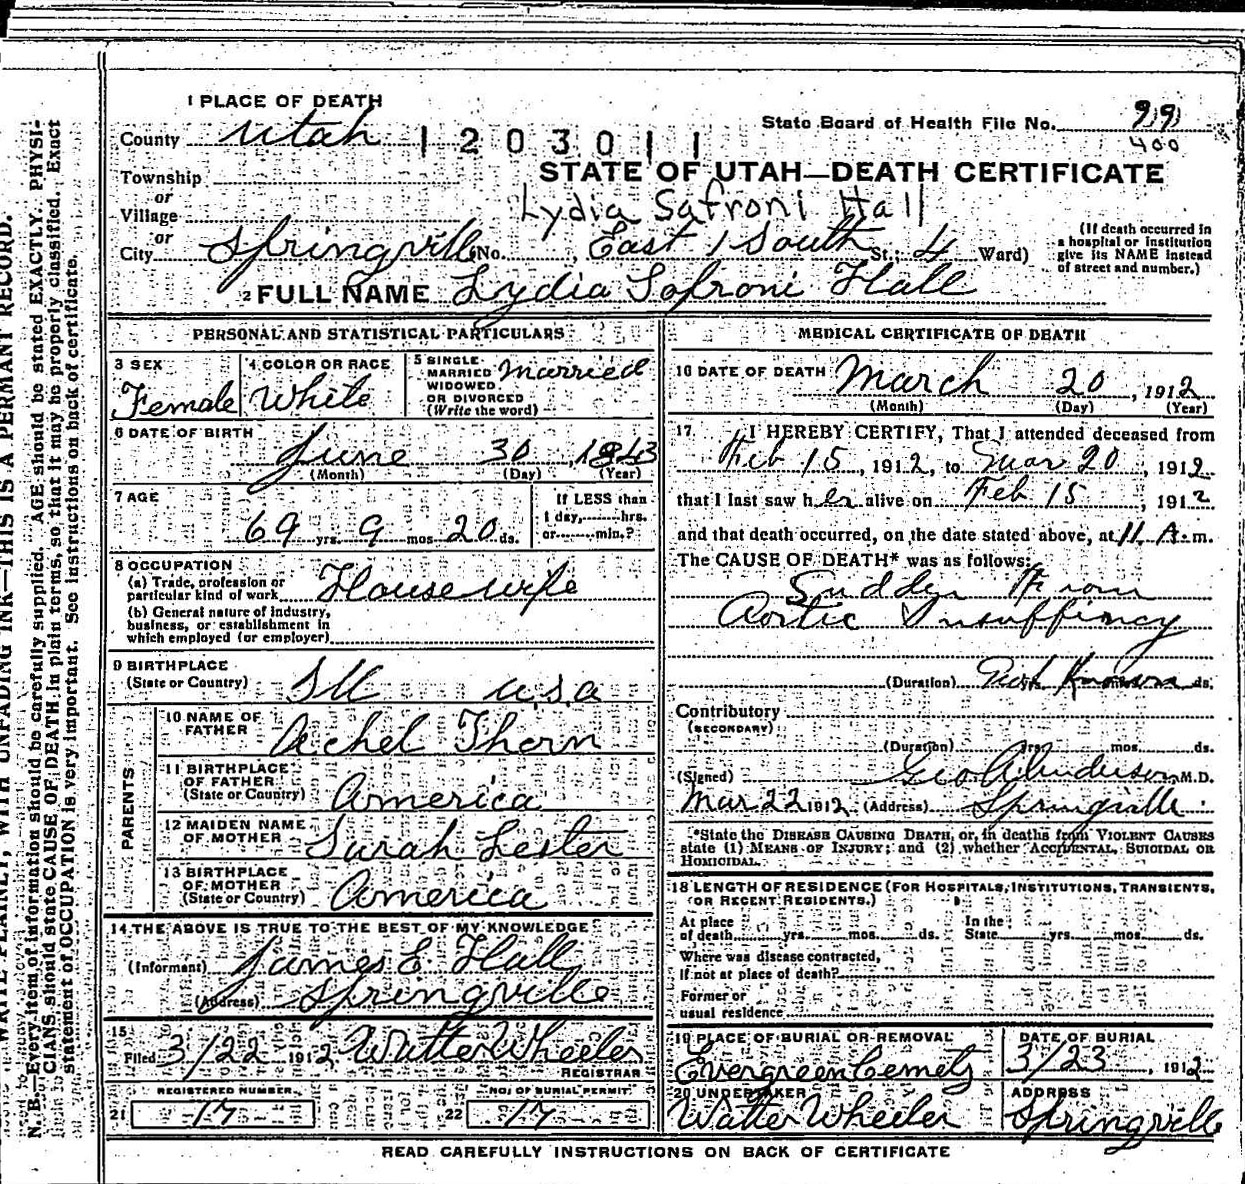 1 PLACE OF DEATH
County Utah 1203011
State Board of Health File No. 99
400
Township
STATE OF UTAH—DEATH CERTIFICATE
or
Village
Lydia Safroni Hall
or
City Springville No. East 1 South St.; 4 Ward)
(If death occurred in
a hospital or institution
give its NAME instead
of street and number.)
2 FULL NAME Lydia Safroni Hall
PERSONAL AND STATISTICAL PARTICULARS
3 SEX
Female
4 COLOR OR RACE
White
5 SINGLE
MARRIED
WIDOWED
OR DIVORCED
(Write the word)
Married
6 DATE OF BIRTH
June 30, 1843
(Month) (Day) (Year)
7 AGE
69 yrs. 9 mos. 20 ds.
If LESS than
1 day,........hrs.
or........min.?
8 OCCUPATION
(a) Trade, profession or
particular kind of work
Housewife
(b) General nature of industry,
business, or establishment in
which employed (or employer)
9 BIRTHPLACE
(State or Country)
Ill U.S.A
PARENTS
10 NAME OF
FATHER
Achel Thorn
11 BIRTHPLACE
OF FATHER
(State or Country)
America
12 MAIDEN NAME
OF MOTHER
Sarah Lester
13 BIRTHPLACE
OF MOTHER
(State or Country)
America
14 THE ABOVE IS TRUE TO THE BEST OF MY KNOWLEDGE
(Informant) James E. Hall
(Address) Springville
15
Filed 3/22 1912 Walter Wheeler
REGISTRAR
REGISTERED NUMBER
21 17
NO. OF BURIAL PERMIT
22 17
MEDICAL CERTIFICATE OF DEATH
16 DATE OF DEATH March 20, 1912
(Month) (Day) (Year)
17 I HEREBY CERTIFY, That I attended deceased from
Feb 15, 1912, to Mar 20, 1912
that I last saw her alive on Feb 15, 1912
and that death occurred, on the date stated above, at 11 A. m.
The CAUSE OF DEATH* was as follows:
Sudden From
Aortic Insuffincy
(Duration) Not Known ds.
Contributory
(SECONDARY)
(Duration) yrs. mos. ds.
(Signed) Geo A Anderson M.D.
Mar 22 1912 (Address) Springville
*State the DISEASE CAUSING DEATH, or, in deaths from VIOLENT CAUSES
state (1) MEANS OF INJURY; and (2) whether ACCIDENTAL, SUICIDAL OR
HOMICIDAL.
18 LENGTH OF RESIDENCE (FOR HOSPITALS, INSTITUTIONS, TRANSIENTS,
OR RECENT RESIDENTS.)
At place
of death........yrs........mos........ds.
In the
State........yrs........mos........ds.
Where was disease contracted,
If not at place of death?
Former or
usual residence
19 PLACE OF BURIAL OR REMOVAL
Evergreen Cemety
DATE OF BURIAL
3/23, 1912
20 UNDERTAKER
Walter Wheeler
ADDRESS
Springville
READ CAREFULLY INSTRUCTIONS ON BACK OF CERTIFICATE
WRITE PLAINLY, WITH UNFADING INK—THIS IS A PERMANT RECORD.
N. B.—Every item of information should be carefully supplied. AGE should be stated EXACTLY. PHYSI-
CIANS should state CAUSE OF DEATH in plain terms, so that it may be properly classified. Exact
statement of OCCUPATION is very important. See instructions on back of certificate.